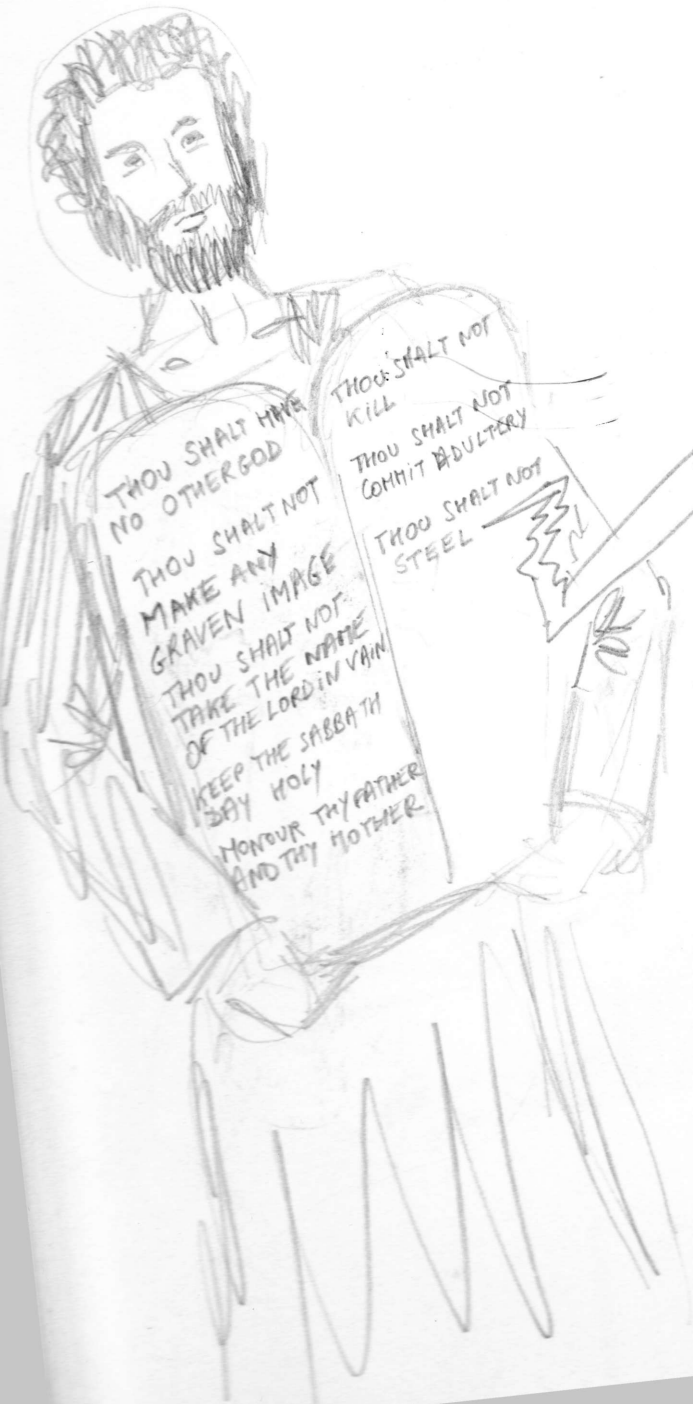 THOU SHALT HAVE
NO OTHER GOD
THOU SHALT NOT
MAKE ANY
GRAVEN IMAGE
THOU SHALT NOT
TAKE THE NAME
OF THE LORD IN VAIN
KEEP THE SABBATH
DAY HOLY
HONOUR THY FATHER
AND THY MOTHER
THOU SHALT NOT
KILL
THOU SHALT NOT
COMMIT ADULTERY
THOU SHALT NOT
STEEL